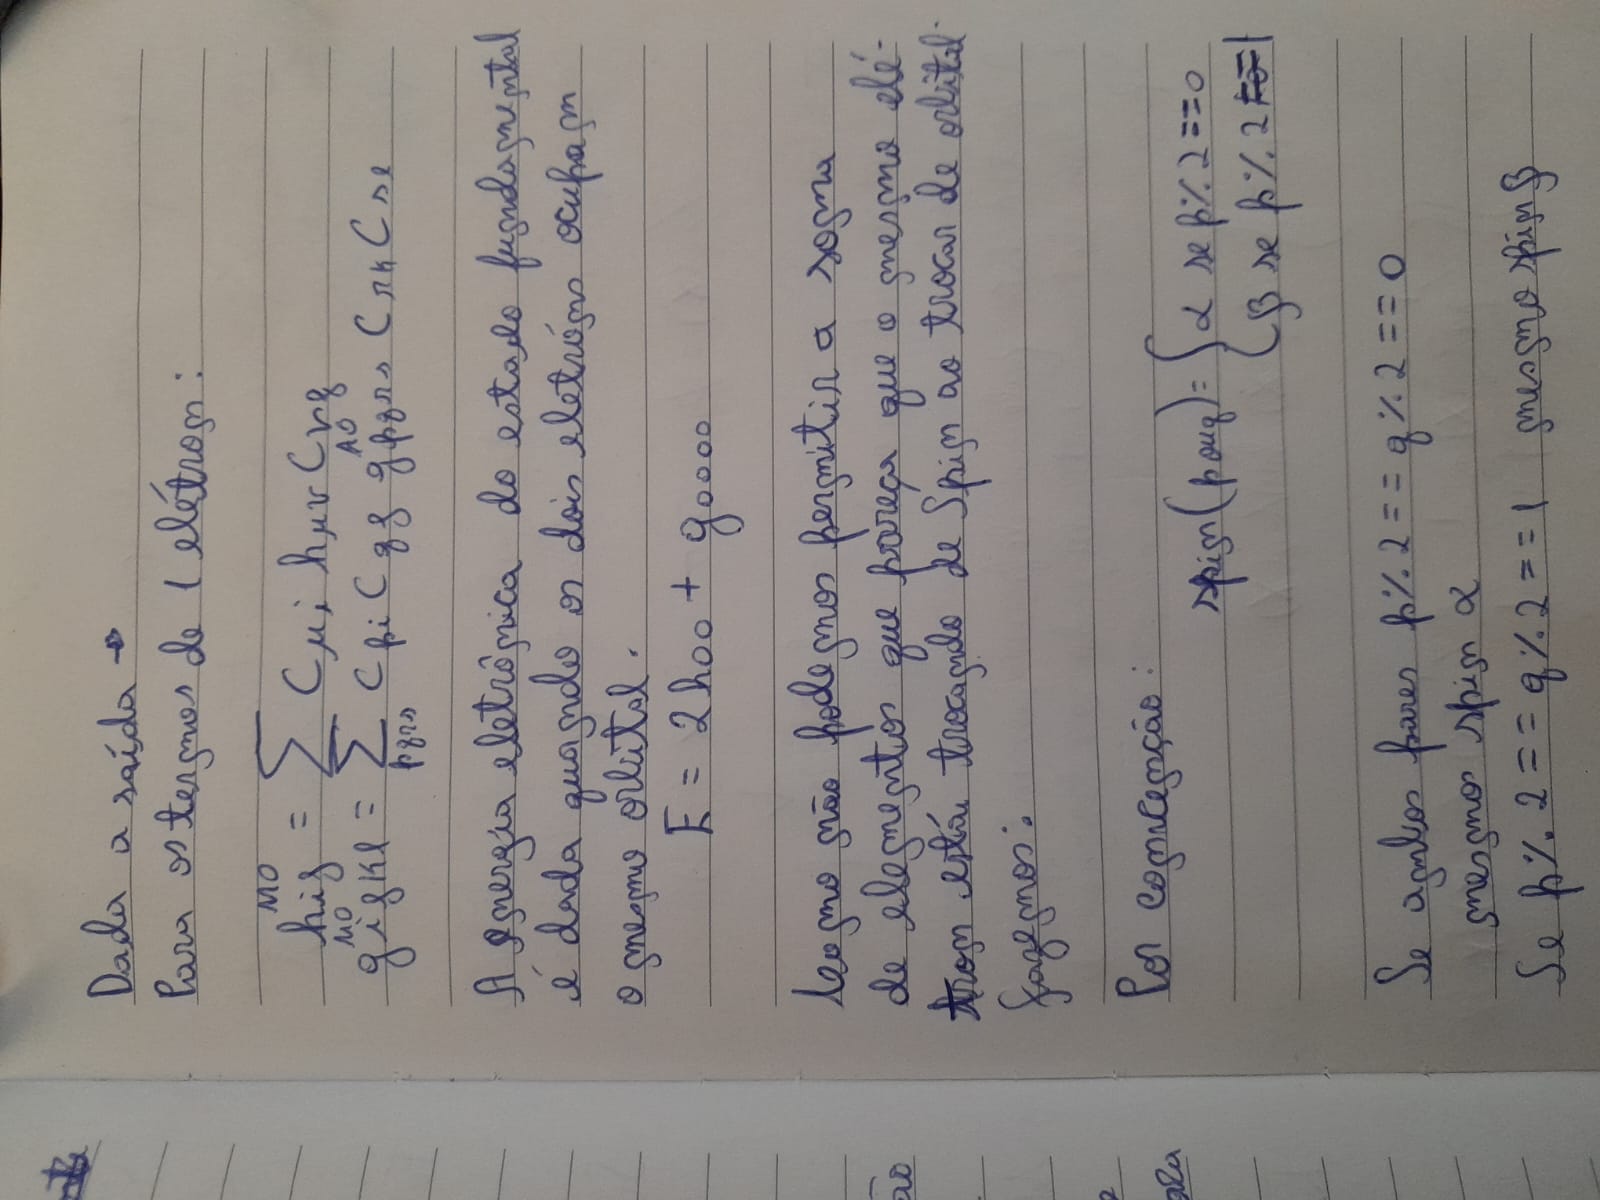 Dada a saída →
Para os termos de 1 elétron:
h_ij^MO = Σ C_μi h_μν C_νj
g_ijkl^MO = Σ_pqrs C_pi C_qj g_pqrs^AO C_rk C_sl
A energia eletrônica do estado fundamental
é dada quando os dois eletróns ocupam
o mesmo orbital.
E = 2h00 + g0000
Como não podemos permitir a soma
de elementos que pareça que o mesmo elé-
tron está trocando de Spin ao trocar de orbital
fazemos:
Por convenção:
spin(p ou q) = { α se p % 2 == 0
β se p % 2 == 1
Se ambos pares p % 2 == q % 2 == 0
mesmos spin α
Se p % 2 == q % 2 == 1 mesmo spin β
ão